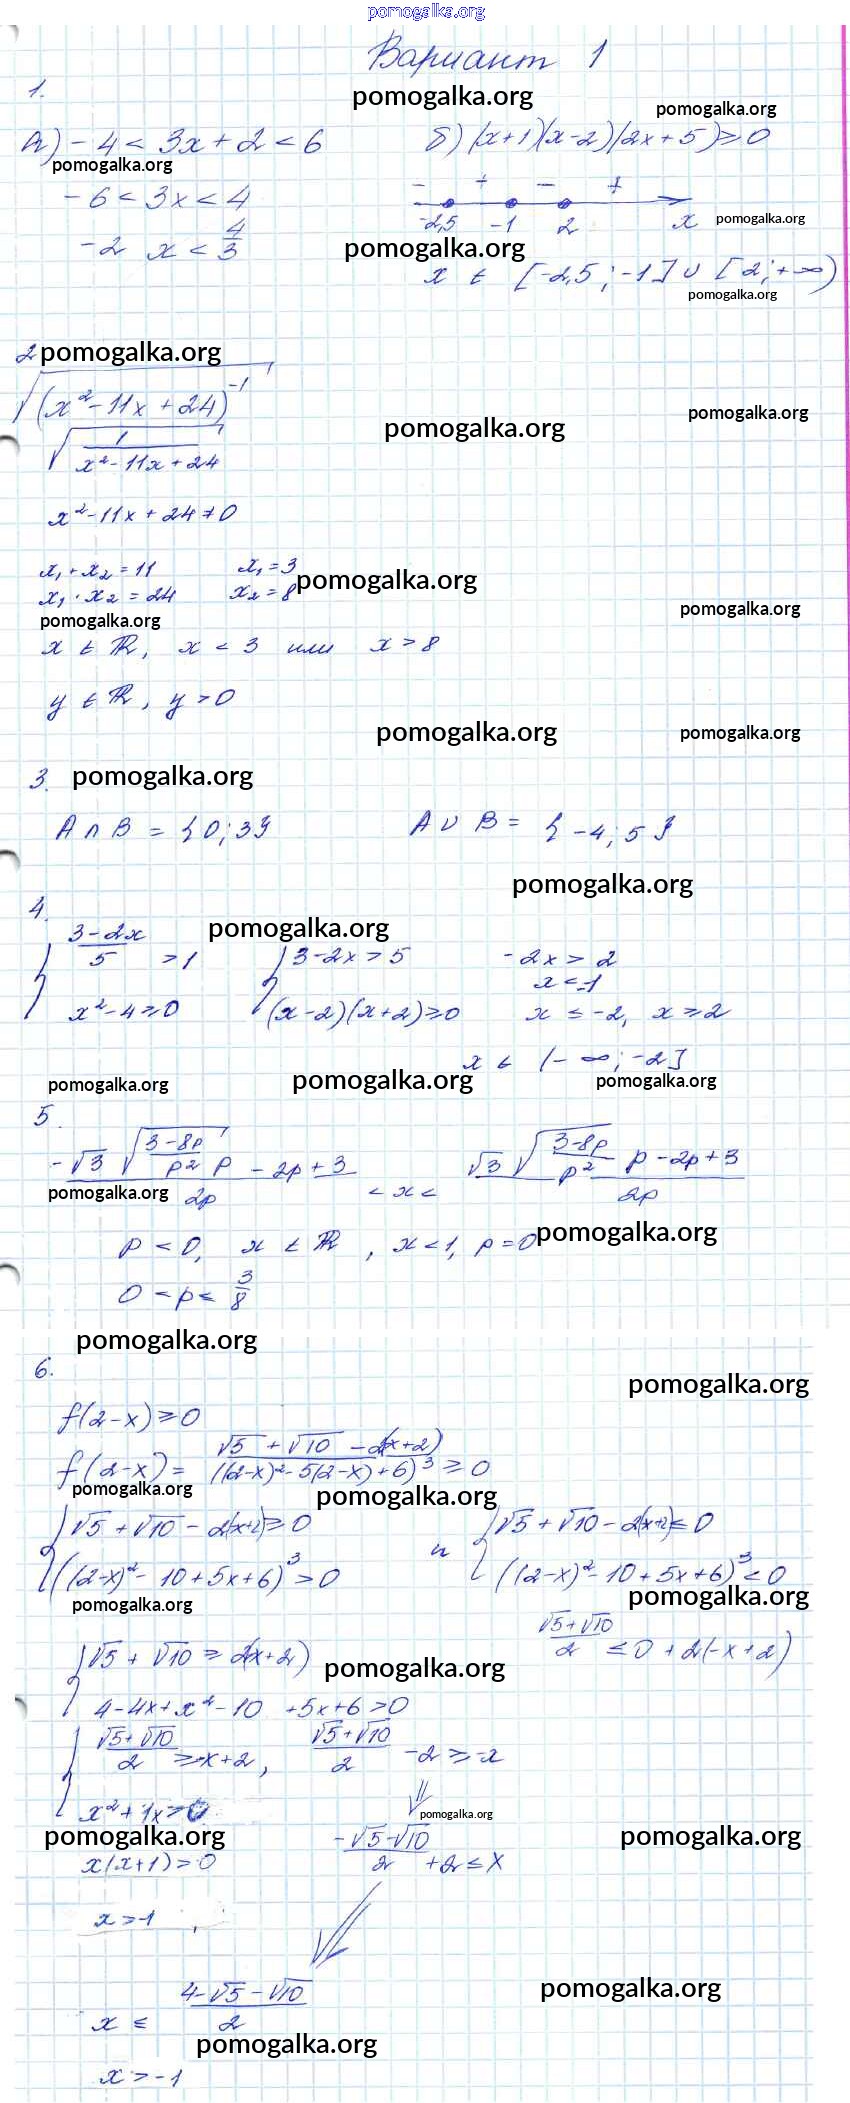 pomogalka.org
Вариант 1
1.
pomogalka.org
pomogalka.org
а) -4 < 3x + 2 < 6
б) (x+1)(x-2)(2x+5) ≥ 0
pomogalka.org
-6 < 3x < 4
- + - +
-2,5 -1 2 x
pomogalka.org
-2 x < 4/3
pomogalka.org
x ∈ [-2,5; -1] ∪ [2; +∞)
pomogalka.org
2
pomogalka.org
√(x² - 11x + 24)⁻¹
pomogalka.org
pomogalka.org
√(1/(x² - 11x + 24))
x² - 11x + 24 ≠ 0
x₁ + x₂ = 11 x₁ = 3
pomogalka.org
x₁ · x₂ = 24 x₂ = 8
pomogalka.org
pomogalka.org
x ∈ ℝ, x < 3 или x > 8
y ∈ ℝ, y > 0
pomogalka.org
pomogalka.org
3.
pomogalka.org
A ∩ B = {0; 3}
A ∪ B = {-4; 5}
pomogalka.org
4.
pomogalka.org
{ (3-2x)/5 > 1 { 3-2x > 5 -2x > 2
x < -1
x² - 4 ≥ 0 (x-2)(x+2) ≥ 0 x ≤ -2, x ≥ 2
x ∈ (-∞; -2]
pomogalka.org
pomogalka.org
pomogalka.org
5.
(-√3 √((3-8p)/p²) p - 2p + 3)/2p < x < (√3 √((3-8p)/p²) p - 2p + 3)/2p
pomogalka.org
p < 0, x ∈ ℝ, x < 1, p = 0
pomogalka.org
0 < p < 3/8
pomogalka.org
6.
pomogalka.org
f(2-x) ≥ 0
f(2-x) = (√5 + √10 - 2(x+2))/((2-x)² - 5(2-x) + 6)³ ≥ 0
pomogalka.org
pomogalka.org
{ √5 + √10 - 2(x+2) ≥ 0 и { √5 + √10 - 2(x+2) ≤ 0
((2-x)² - 10 + 5x + 6)³ > 0 ((2-x)² - 10 + 5x + 6)³ < 0
pomogalka.org
pomogalka.org
(√5+√10)/2 ≤ 0 + 2(-x+2)
{ √5 + √10 ≥ 2(x+2)
pomogalka.org
4 - 4x + x² - 10 + 5x + 6 > 0
{ (√5+√10)/2 ≥ -x + 2, (√5+√10)/2 - 2 ≥ -x
x² + 1x > 0
pomogalka.org
pomogalka.org
pomogalka.org
(-√5-√10)/2 + 2 ≤ x
x(x+1) > 0
x > -1,
pomogalka.org
x ≤ (4-√5-√10)/2
pomogalka.org
x > -1